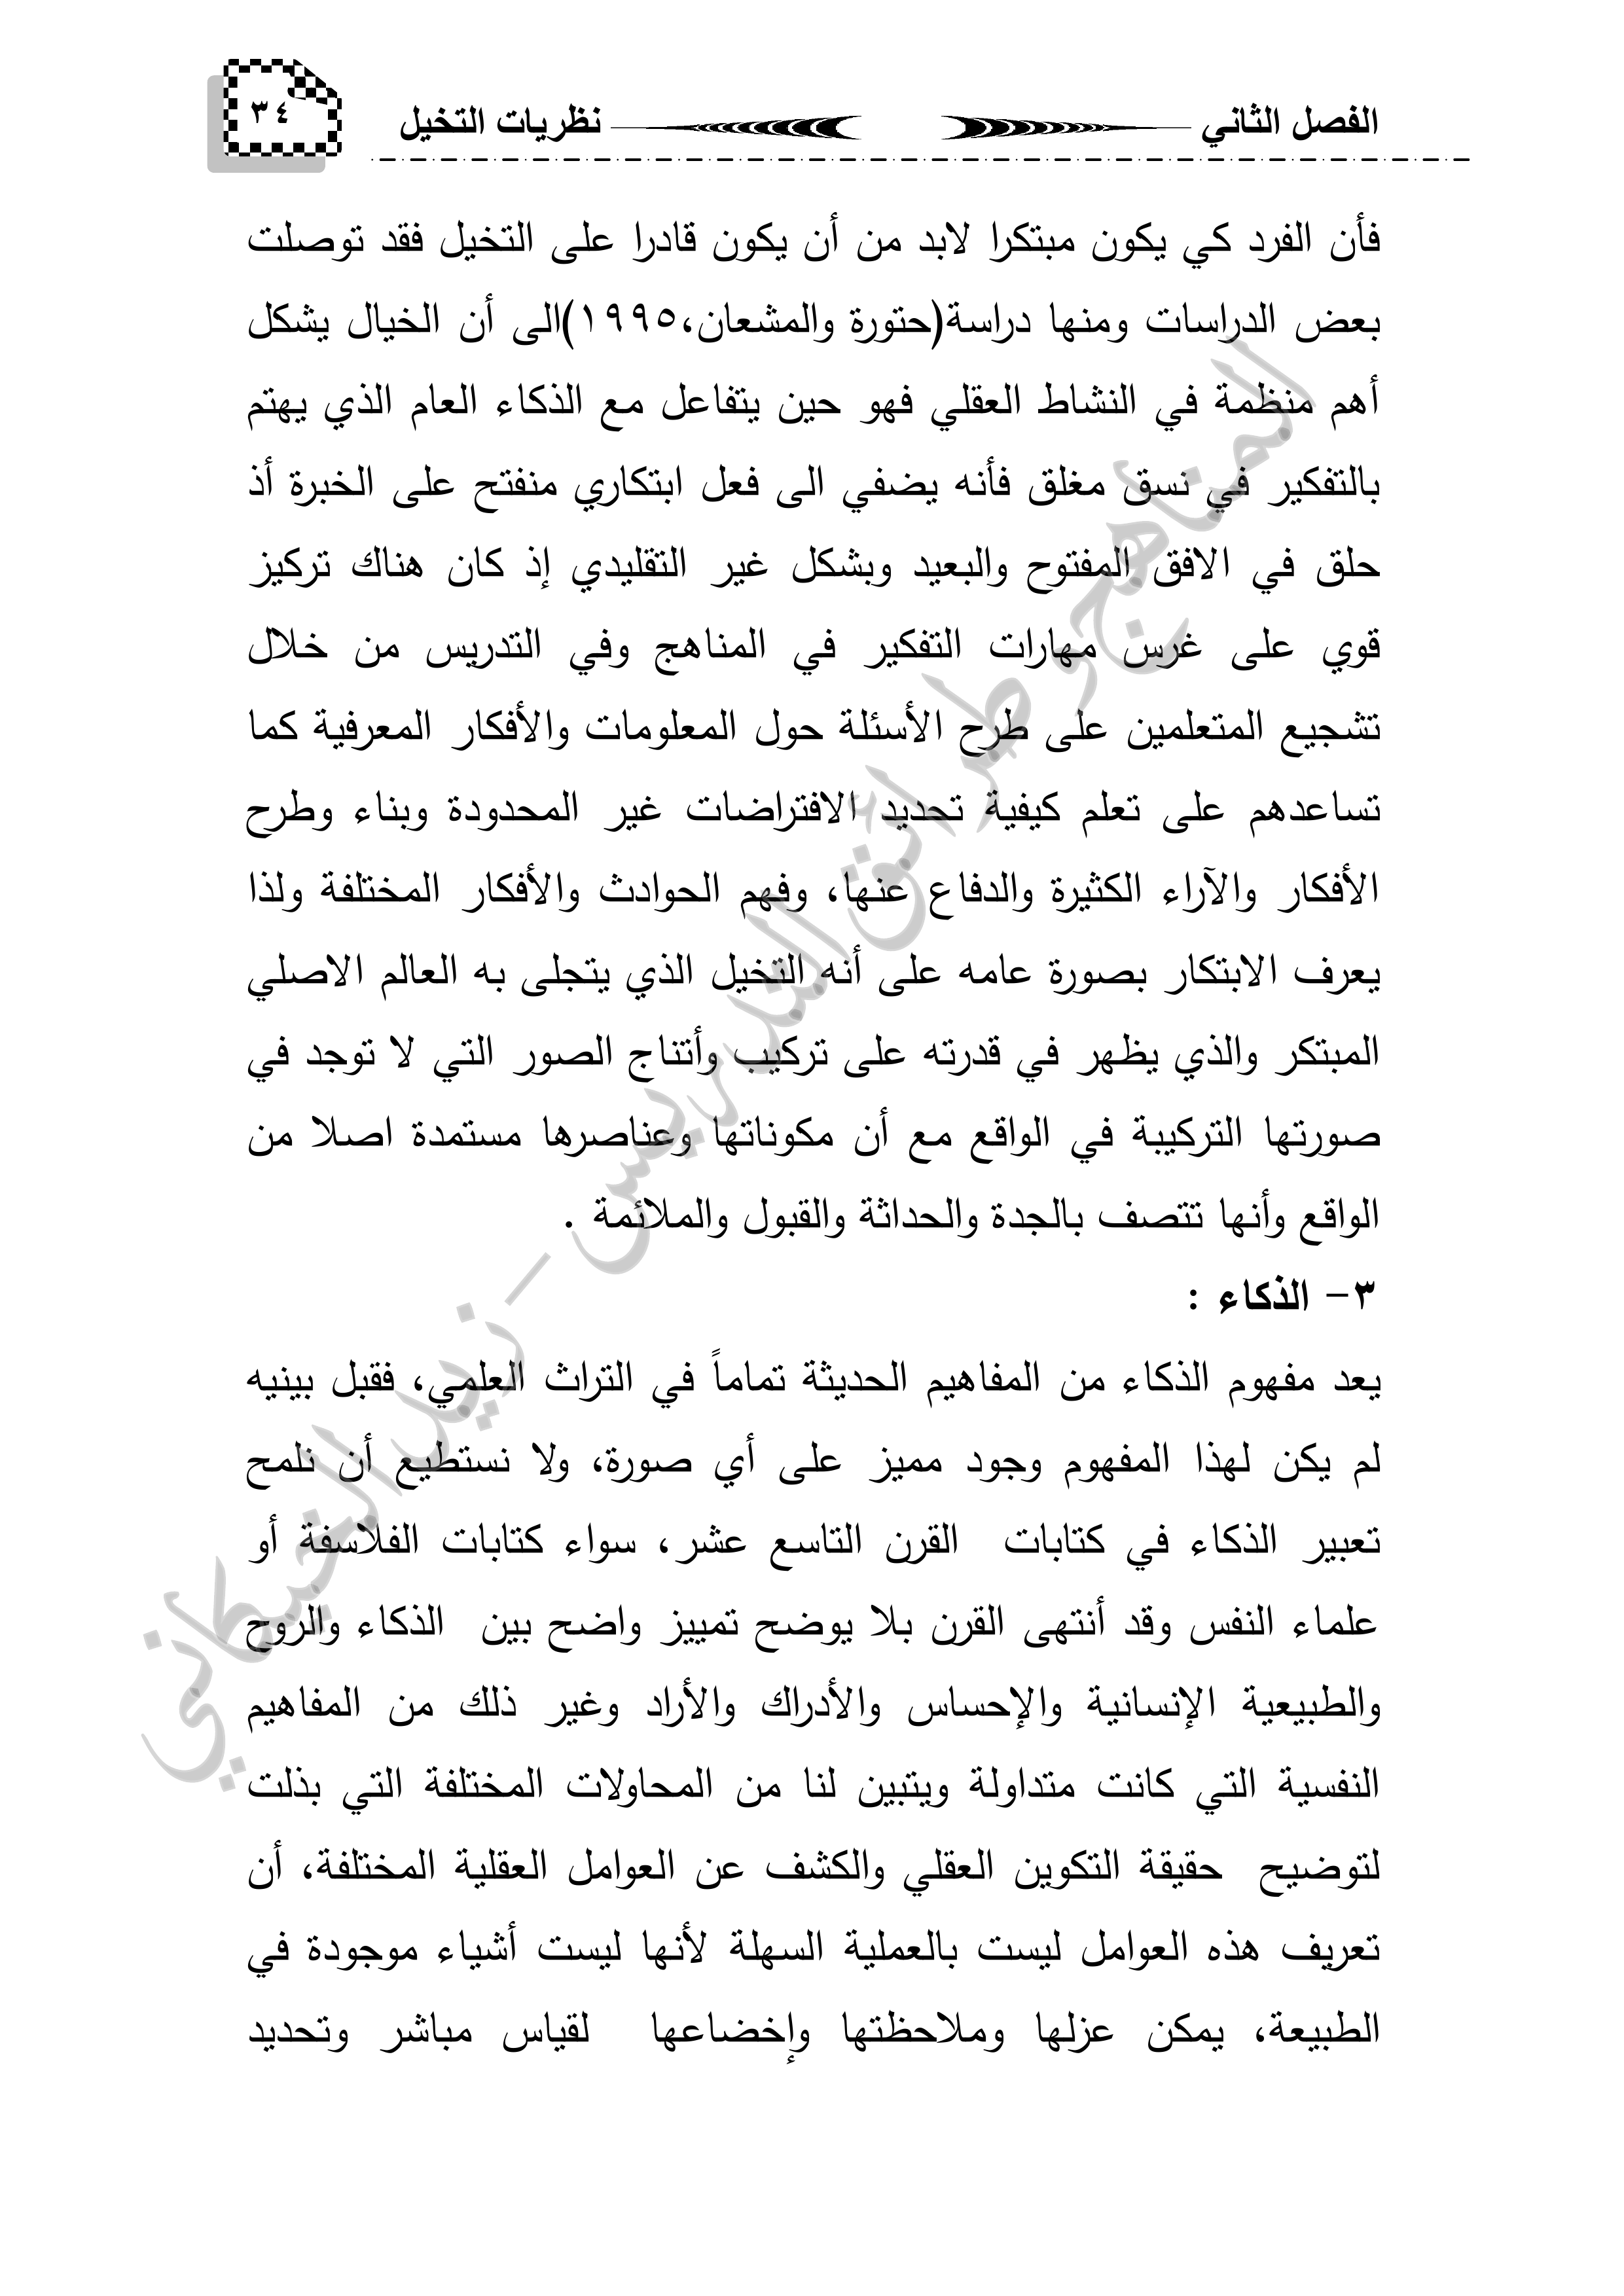 الفصل الثاني
نظريات التخيل
٣٤
فأن الفرد كي يكون مبتكرا لابد من أن يكون قادرا على التخيل فقد توصلت
بعض الدراسات ومنها دراسة(حتورة والمشعان،١٩٩٥)الى أن الخيال يشكل
أهم منظمة في النشاط العقلي فهو حين يتفاعل مع الذكاء العام الذي يهتم
بالتفكير في نسق مغلق فأنه يضفي الى فعل ابتكاري منفتح على الخبرة أذ
حلق في الافق المفتوح والبعيد وبشكل غير التقليدي إذ كان هناك تركيز
قوي على غرس مهارات التفكير في المناهج وفي التدريس من خلال
تشجيع المتعلمين على طرح الأسئلة حول المعلومات والأفكار المعرفية كما
تساعدهم على تعلم كيفية تحديد الافتراضات غير المحدودة وبناء وطرح
الأفكار والآراء الكثيرة والدفاع عنها، وفهم الحوادث والأفكار المختلفة ولذا
يعرف الابتكار بصورة عامه على أنه التخيل الذي يتجلى به العالم الاصلي
المبتكر والذي يظهر في قدرته على تركيب وأنتاج الصور التي لا توجد في
صورتها التركيبة في الواقع مع أن مكوناتها وعناصرها مستمدة اصلا من
الواقع وأنها تتصف بالجدة والحداثة والقبول والملائمة .
٣- الذكاء :
يعد مفهوم الذكاء من المفاهيم الحديثة تماماً في التراث العلمي، فقبل بينيه
لم يكن لهذا المفهوم وجود مميز على أي صورة، ولا نستطيع أن نلمح
تعبير الذكاء في كتابات القرن التاسع عشر، سواء كتابات الفلاسفة أو
علماء النفس وقد أنتهى القرن بلا يوضح تمييز واضح بين الذكاء والروح
والطبيعية الإنسانية والإحساس والأدراك والأراد وغير ذلك من المفاهيم
النفسية التي كانت متداولة ويتبين لنا من المحاولات المختلفة التي بذلت
لتوضيح حقيقة التكوين العقلي والكشف عن العوامل العقلية المختلفة، أن
تعريف هذه العوامل ليست بالعملية السهلة لأنها ليست أشياء موجودة في
الطبيعة، يمكن عزلها وملاحظتها وإخضاعها لقياس مباشر وتحديد
المناهج وطرائق التدريس - زيد الخيكاني